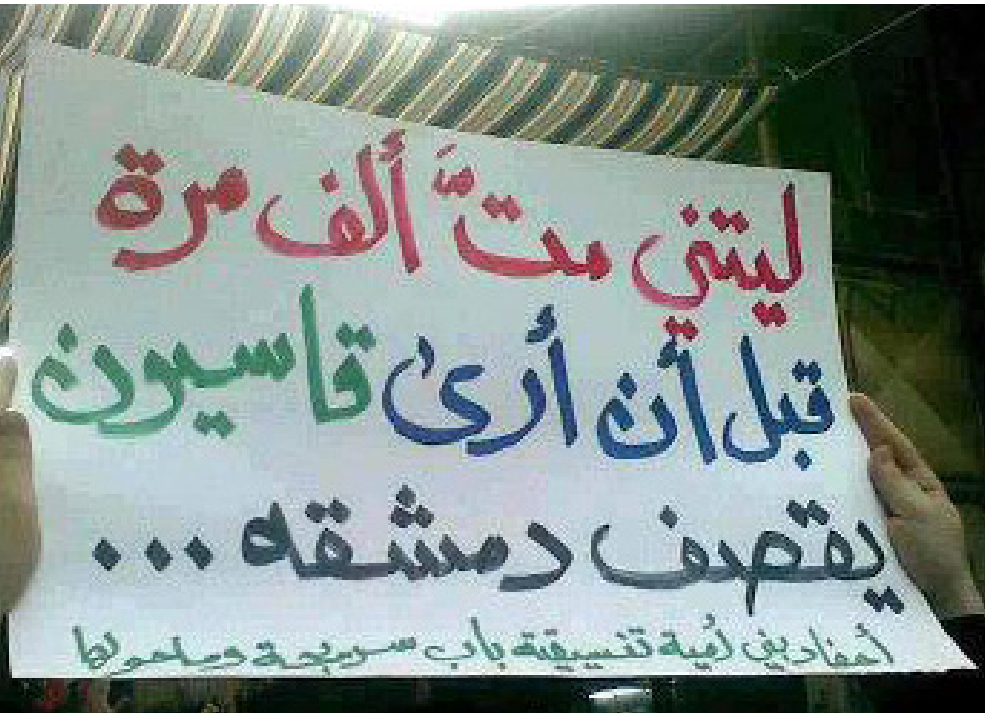 ليتني متَّ ألف مرة
قبل أن أرى قاسيون
يقصف دمشقه ...
أحفاد بني أمية تنسيقية باب سريجة وماحولها